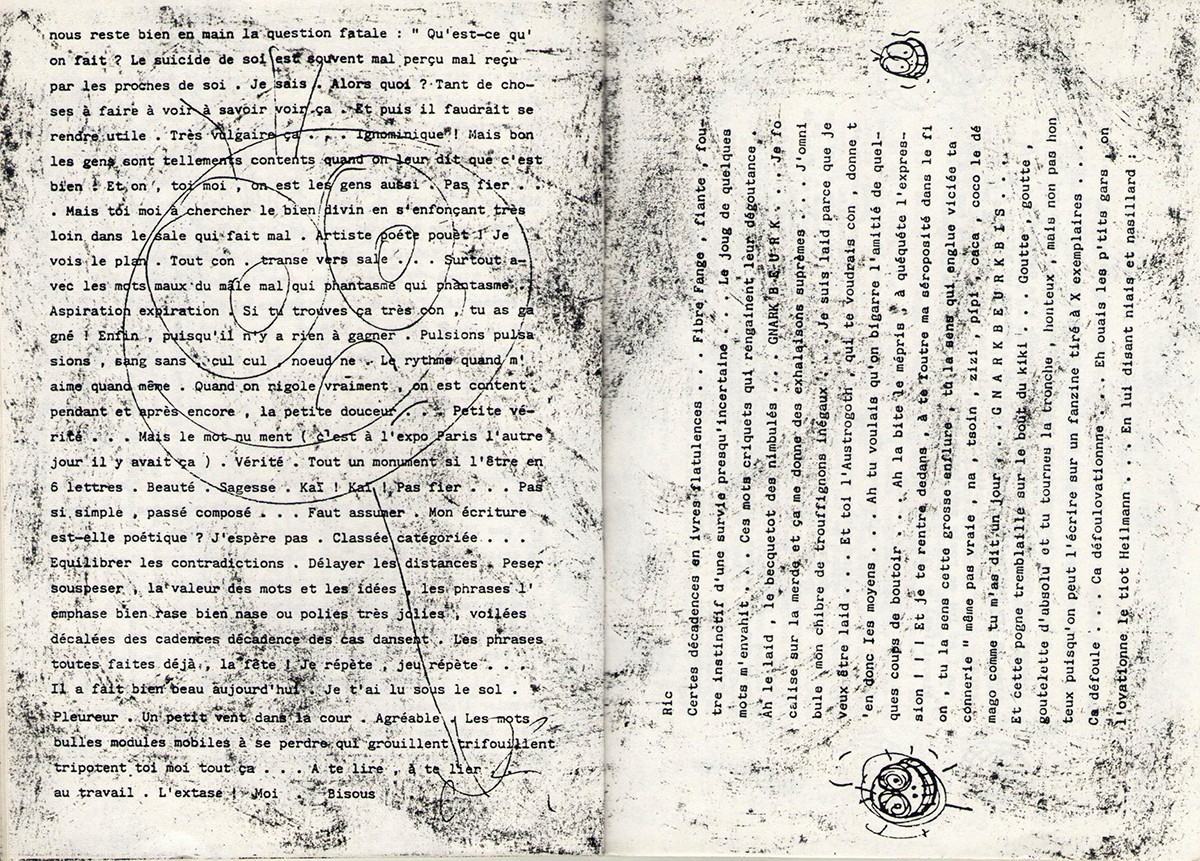 nous reste bien en main la question fatale : " Qu'est-ce qu'
on fait ? Le suicide de soi est souvent mal perçu mal reçu
par les proches de soi . Je sais . Alors quoi ? Tant de cho-
ses à faire à voir à savoir voir ça . Et puis il faudrait se
rendre utile . Très vulgaire ça . . . Ignominique ! Mais bon
les gens sont tellements contents quand on leur dit que c'est
bien ! Et on , toi moi , on est les gens aussi . Pas fier . .
. Mais toi moi à chercher le bien divin en s'enfonçant très
loin dans le sale qui fait mal . Artiste poéte pouèt ! Je
vois le plan . Tout con . transe vers sale . . . Surtout a-
vec les mots maux du mâle mal qui phantasme qui phantasme..
Aspiration expiration . Si tu trouves ça très con , tu as ga
gné ! Enfin , puisqu'il n'y a rien à gagner . Pulsions pulsa
sions , sang sans , cul cul , noeud ne . Le rythme quand m'
aime quand même . Quand on rigole vraiment , on est content
pendant et après encore , la petite douceur . . . Petite vé-
rité . . . Mais le mot nu ment ( c'est à l'expo Paris l'autre
jour il y avait ça ) . Vérité . Tout un monument si l'être en
6 lettres . Beauté . Sagesse . Kaï ! Kaï ! Pas fier . . . Pas
si simple , passé composé . . . Faut assumer . Mon écriture
est-elle poétique ? J'espère pas . Classée catégoriée . . . .
Equilibrer les contradictions . Délayer les distances . Peser
souspeser , la valeur des mots et les idées , les phrases l'
emphase bien rase bien nase ou polies très jolies , voilées
décalées des cadences décadence des cas dansent . Les phrases
toutes faites déjà , la fête ! Je répète , jeu répète . . .
Il a fait bien beau aujourd'hui . Je t'ai lu sous le sol .
Pleureur . Un petit vent dans la cour . Agréable . Les mots
bulles modules mobiles à se perdre qui grouillent trifouillent
tripotent toi moi tout ça . . . A te lire , à te lier
au travail . L'extase ! Moi Bisous
Ric
Certes décadences en ivres flatulences . . . Fibre Fange , fiante , fou-
tre instinctif d'une survie presqu'incertaine . . . Le joug de quelques
mots m'envahit . . . Ces mots criquets qui rengainent leur dégoutance .
Ah le laid , le becquetot des nimbulés . . . GNARK B E U R K . . . Je fo
calise sur la merde et ça me donne des exhalaisons suprêmes . . . J'omni
bule mon chibre de trouffignons inégaux . . . Je suis laid parce que je
veux être laid . . . Et toi l'Austrogoth , qui te voudrais con , donne t
'en donc les moyens . . . Ah tu voulais qu'on bigarre l'amitié de quel-
ques coups de boutoir . . . Ah la bite le mépris , à quéquéte l'expres-
sion ! ! ! Et je te rentre dedans , à te foutre ma séroposité dans le fi
on , tu la sens cette grosse enflure , tu la sens qui englue viciée ta
connerie " même pas vraie , na , tsoin , zizi , pipi , caca , coco le dé
mago comme tu m'as dit un jour . . . G N A R K B E U R K B I S . . .
Et cette pogne tremblaille sur le bout du kiki . . . Goutte , goutte ,
goutelette d'absolu et tu tournes la tronche , honteux , mais non pas hon
teux puisqu'on peut l'écrire sur un fanzine tiré à X exemplaires . . .
Ca défoule . . . Ca défoulovationnne . . . Eh ouais les p'tits gars , on
l'ovationne le tiot Heilmann . . . En lui disant niais et nasillard :